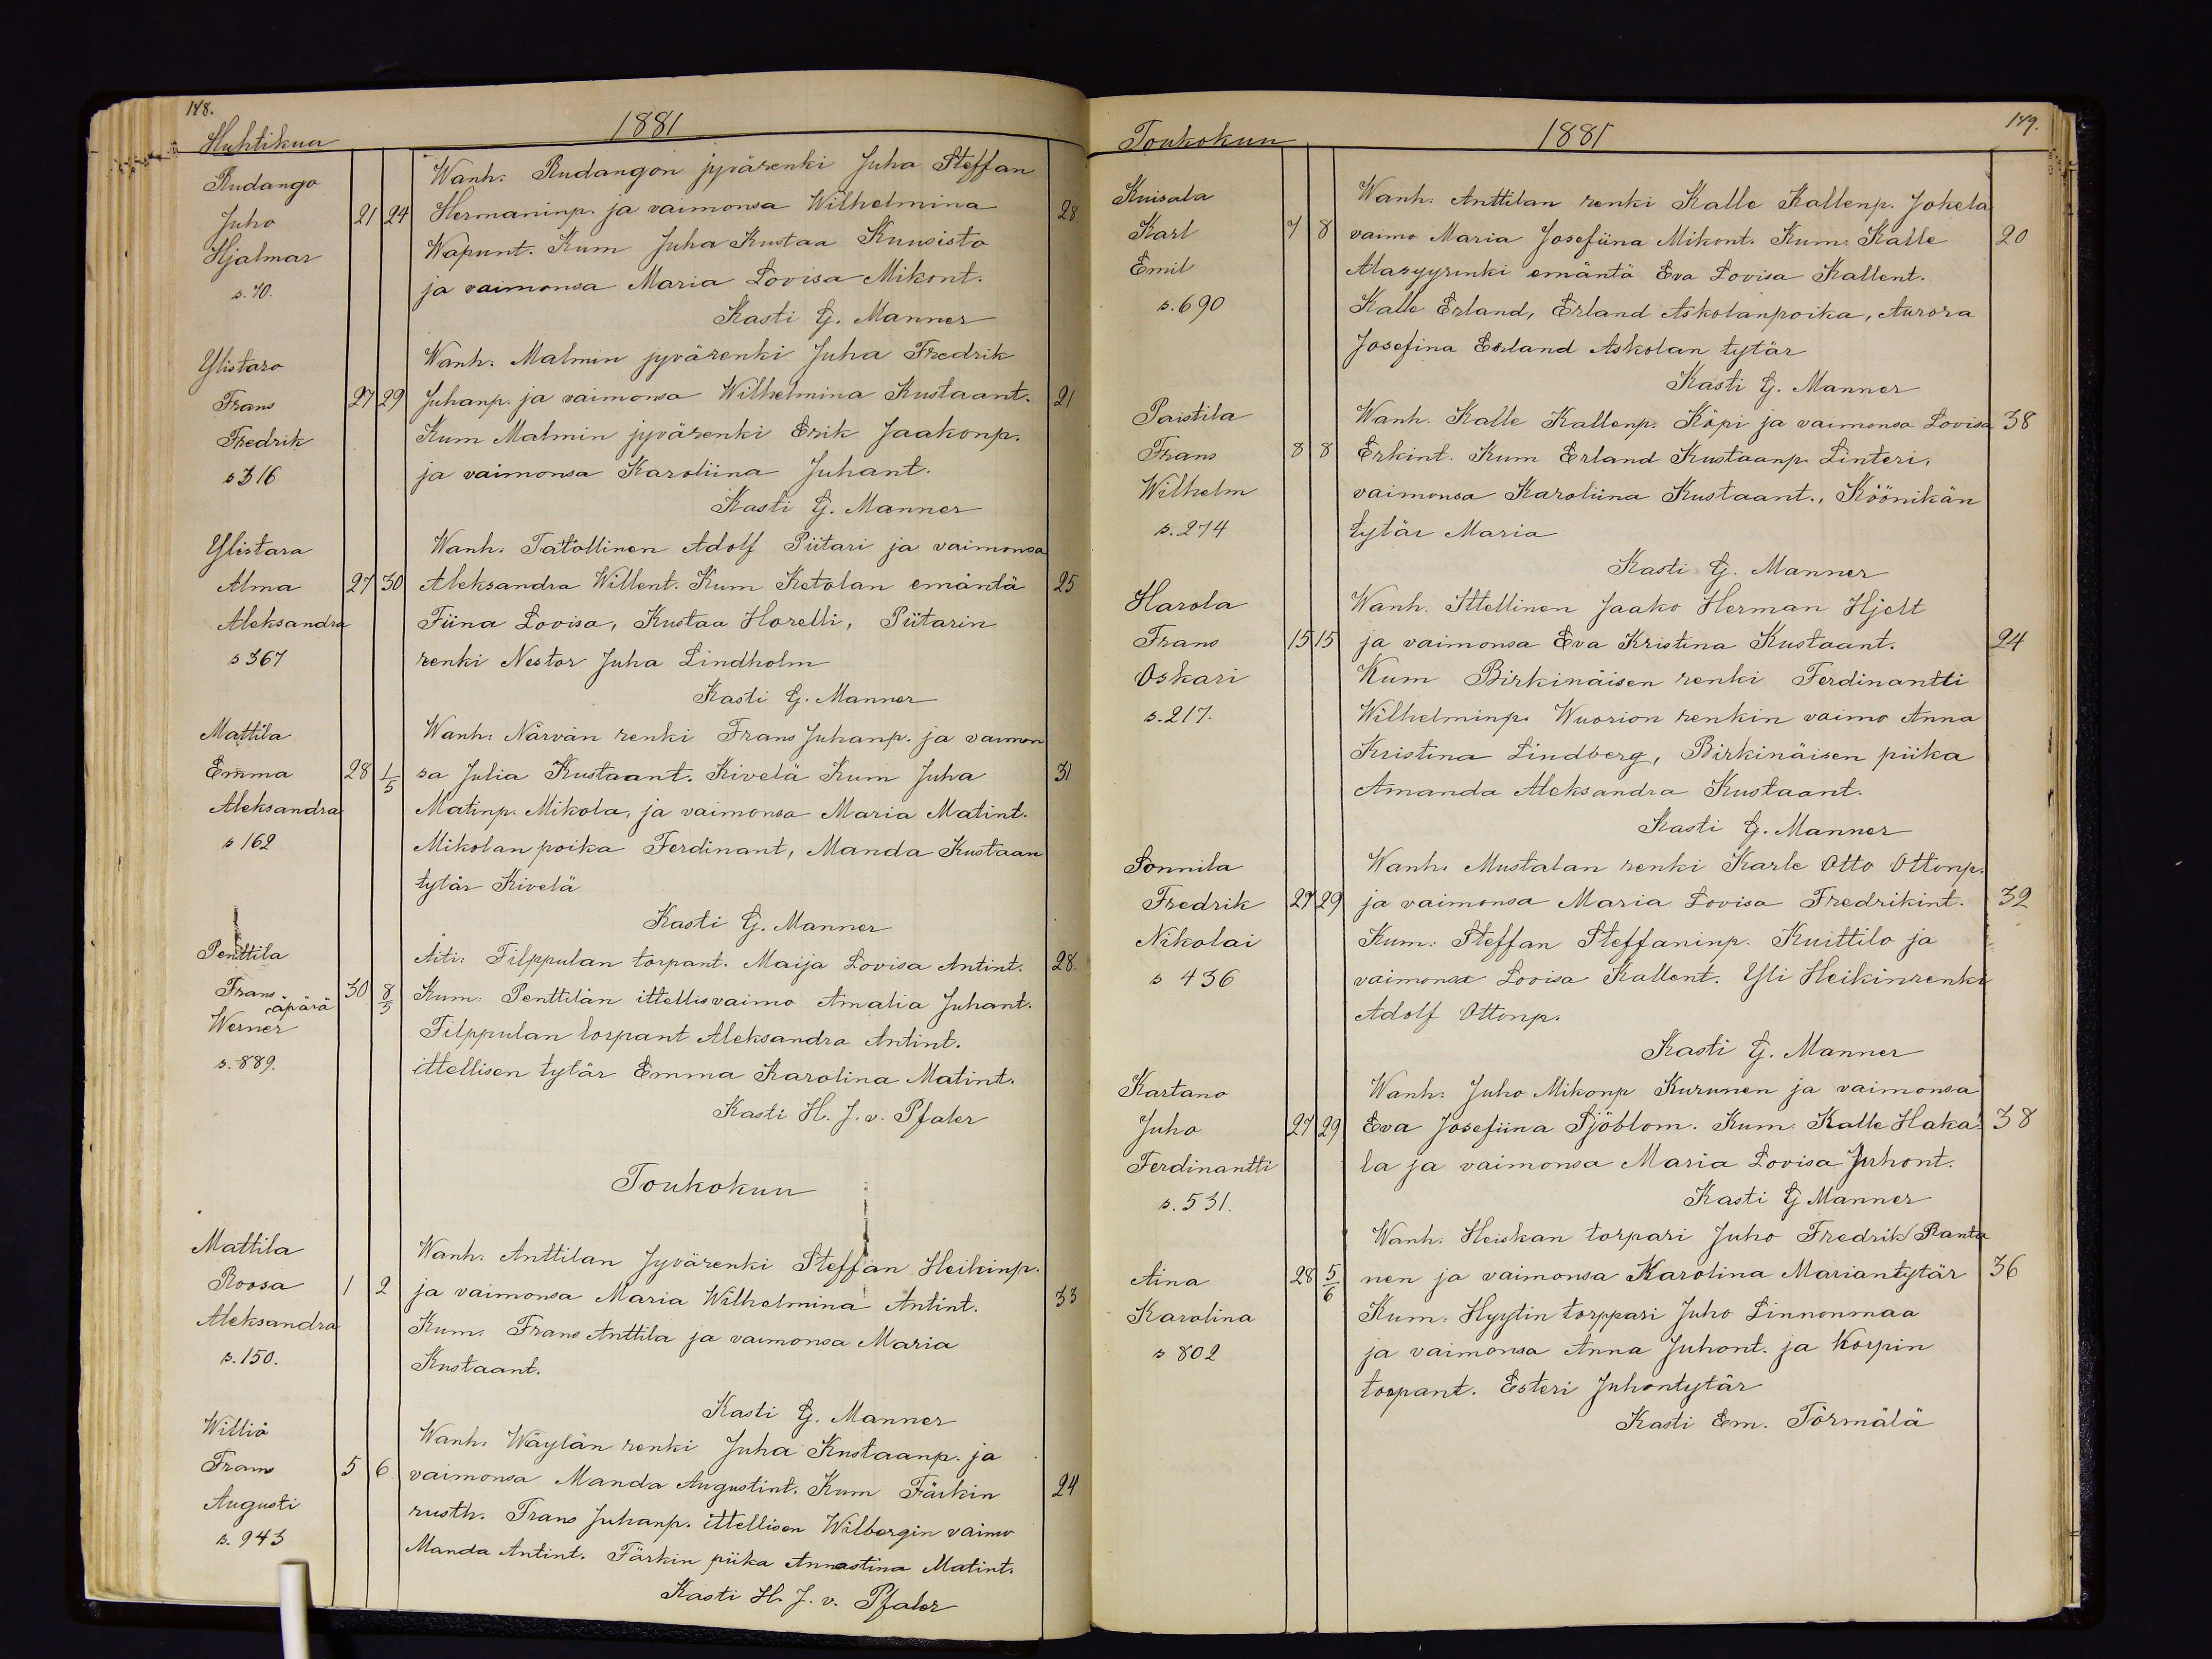 148.
Huhtikuu
1881
Rudango
Wanh. Rudangon jyvärenki Juha Steffan
Juho 21 24 Hermaninp. ja vaimonsa Wilhelmina 28
Hjalmar Wapunt. Kum Juha Kustaa Kuusisto
s. 70. ja vaimonsa Maria Lovisa Mikont.
Kasti G. Manner
Ylistaro Wanh. Malmin jyvärenki Juha Fredrik
Frans 27 29 Juhanp. ja vaimonsa Wilhelmina Kustaant. 21
Fredrik Kum Malmin jyvärenki Erik Jaakonp.
s 316 ja vaimonsa Karoliina Juhant.
Kasti G. Manner
Ylistara Wanh. Tatollinen Adolf Piitari ja vaimonsa
Alma 27 30 Aleksandra Willent. Kum Ketolan emäntä 25
Aleksandra Fiina Lovisa, Kustaa Horelli, Piitarin
s 367 renki Nestor Juha Lindholm
Kasti G. Manner
Mattila Wanh. Närvän renki Frans Juhanp. ja vaimon
Emma 28 1/5 sa Julia Kustaant. Kivelä Kum Juha 31
Aleksandra Matinp. Mikola, ja vaimonsa Maria Matint.
s 162 Mikolan poika Ferdinant, Manda Kustaan
tytär Kivelä
Kasti G. Manner
Penttila Äiti: Filppulan torpant. Maija Lovisa Antint. 28.
Frans 30 8/5 Kum. Penttilän ittellisvaimo Amalia Juhant.
äpärä
Werner Filppulan torpant Aleksandra Antint.
s. 889. ittellisen tytär Emma Karolina Matint.
Kasti H. J. v. Pfaler
Toukokuu
Mattila Wanh. Anttilan Jyvärenki Steffan Heikinp.
Roosa 1 2 ja vaimonsa Maria Wilhelmina Antint. 33
Aleksandra Kum. Frans Anttila ja vaimonsa Maria
s. 150. Kustaant.
Kasti G. Manner
Williö Wanh. Wäylän renki Juha Kustaanp. ja
Frans 5 6 vaimonsa Manda Augustint. Kum Färkin 24
Augusti rusth. Frans Juhanp. ittellisen Wilbergin vaimo
s. 943 Manda Antint. Färkin piika Annastina Matint.
Kasti H. J. v. Pfaler
149.
Toukokuu
1881
Kuisala Wanh. Anttilan renki Kalle Kallenp. Jokela
Karl 7 8 vaimo Maria Josefiina Mikont. Kum. Kalle 20
Emil emäntä Eva Lovisa Kallent.
s. 690 Kalle Erland, Erland Askolanpoika, Aurora
Josefina Erland Askolan tytär
Kasti G. Manner
Paistila Wanh. Kalle Kallenp. Köpi ja vaimonsa Lovisa 38
Frans 8 8 Erkint. Kum Erland Kustaanp. Linteri,
Wilhelm vaimonsa Karoliina Kustaant., Köönikän
s. 274 tytär Maria
Kasti G. Manner
Harola Wanh. Ittellinen Jaako Herman Hjelt
Frans 15 15 ja vaimonsa Eva Kristina Kustaant. 24
Oskari Kum Birkinäisen renki Ferdinantti
s. 217. Wilhelminp. Wuorion renkin vaimo Anna
Kristina Lindberg, Birkinäisen piika
Amanda Aleksandra Kustaant.
Kasti G. Manner
Sonnila Wanh. Mustalan renki Karle Otto Ottonp.
Fredrik 27 29 ja vaimonsa Maria Lovisa Fredrikint. 32
Nikolai Kum. Steffan Steffaninp. Kuittilo ja
s 436 vaimonsa Lovisa Kallent. Yli Heikinrenki
Adolf Ottonp.
Kasti G. Manner
Kartano Wanh. Juho Mikonp Kurunen ja vaimonsa
Juho 27 29 Eva Josefiina Sjöblom. Kum. Kalle Haka- 38
Ferdinantti la ja vaimonsa Maria Lovisa Juhont.
s. 531. Kasti G Manner
Wanh. Heiskan torpari Juho Fredrik Ranta
Aina 28 5/6 nen ja vaimonsa Karolina Mariantytär 36
Karolina Kum. Hyytin torppari Juho Linnonmaa
s 802 ja vaimonsa Anna Juhont. ja Korpin
torpant. Esteri Juhontytär
Kasti Em. Törmälä